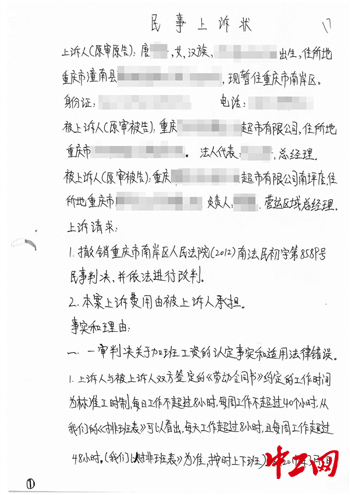 民事上诉状
17
上诉人(原审原告):唐 ,女、汉族, 出生,住所地
重庆市潼南县 ,现暂住重庆市南岸区。
身份证: 电话:
被上诉人(原审被告):重庆 超市有限公司,住所地
重庆市 。法人代表: ,总经理
被上诉人(原审被告):重庆 超市有限公司南坪店住
所地重庆市 负责人: ,营运区域总经理.
上诉请求:
1.撤销重庆市南岸区人民法院(2012)南法民初字第8589号
民事判决、并依法进行改判。
2.本案上诉费用由被上诉人承担.
事实和理由:
一.一审判决关于加班工资的认定事实和适用法律错误。
1.上诉人与被上诉人双方签定的《劳动合同书》约定的工作时间
为标准工时制,每日工作不超过8小时,每周工作不超过40个小时,从
我们的《排班表》可以看出,每天工作超过8小时,且每周工作超过
48小时.(我们以排班表》为准,按时上下班)
①
中工网